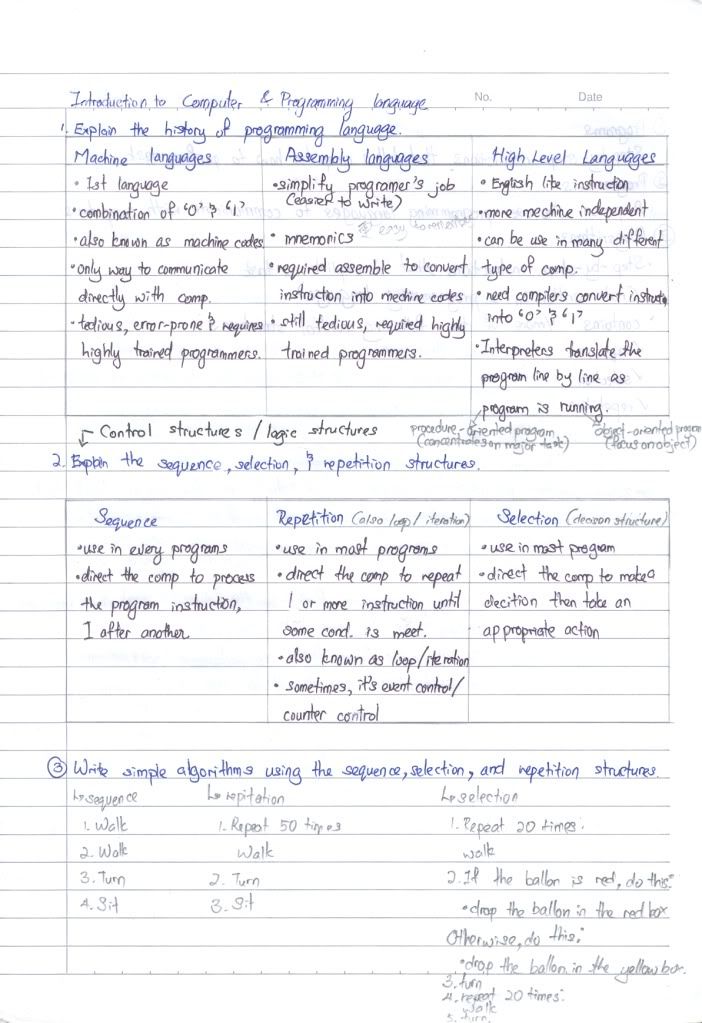 Introduction to Computer & Programming language
No. Date
1. Explain the history of programming language.
Machine languages
• 1st language
• combination of '0' & '1'
• also known as machine codes
• only way to communicate
directly with comp.
• tedious, error-prone & requires
highly trained programmers.
Assembly languages
• simplify programer's job
(easier to write)
• mnemonics
• required assemble to convert
instruction into medine codes
• still tedious, required highly
trained programmers.
High Level Languages
• English like instruction
• more mechine independent
• can be use in many different
type of comp.
• need compilers convert
into '0' & '1'
• Interpreters translate the
program line by line as
program is running.
procedure-oriented program
(concentrates on major task)
object-oriented program
(focus on object)
Control structures / logic structures
2. Explain the sequence, selection, & repetition structures.
Sequence
• use in every programs
• direct the comp to process
the program instruction,
1 after another
Repetition (also loop / iteration)
• use in most programs
• direct the comp to repeat
1 or more instruction until
some cond. is meet.
• also known as loop/iteration
• sometimes, it's event control/
counter control
Selection (decison structure)
• use in most program
• direct the comp to make a
decition then take an
appropriate action
③ Write simple algorithms using the sequence, selection, and repetition structures.
↳ sequence
1. Walk
2. Walk
3. Turn
4. Sit
↳ repitation
1. Repeat 50 times
Walk
2. Turn
3. Sit
↳ selection
1. Repeat 20 times:
walk
2. If the ballon is red, do this:
• drop the ballon in the red box
Otherwise, do this:
• drop the ballon in the yellow box.
3. turn
4. repeat 20 times:
walk
5. turn